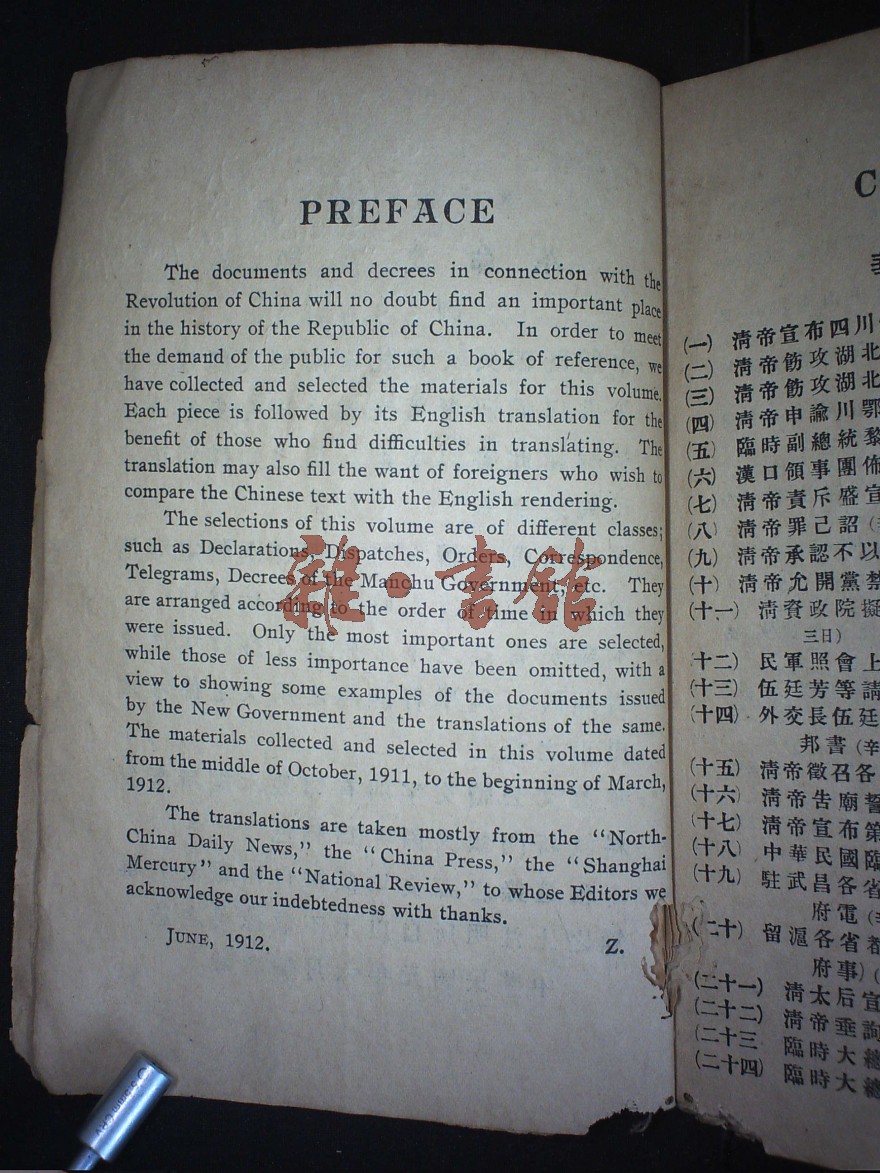 PREFACE
The documents and decrees in connection with the
Revolution of China will no doubt find an important place
in the history of the Republic of China. In order to meet
the demand of the public for such a book of reference, we
have collected and selected the materials for this volume.
Each piece is followed by its English translation for the
benefit of those who find difficulties in translating. The
translation may also fill the want of foreigners who wish to
compare the Chinese text with the English rendering.
The selections of this volume are of different classes;
such as Declarations, Dispatches, Orders, Correspondence,
Telegrams, Decrees of the Manchu Government, etc. They
are arranged according to the order of time in which they
were issued. Only the most important ones are selected,
while those of less importance have been omitted, with a
view to showing some examples of the documents issued
by the New Government and the translations of the same.
The materials collected and selected in this volume dated
from the middle of October, 1911, to the beginning of March,
1912.
The translations are taken mostly from the "North-
China Daily News," the "China Press," the "Shanghai
Mercury" and the "National Review," to whose Editors we
acknowledge our indebtedness with thanks.
JUNE, 1912. Z.
雜·書館
C
(一) 清帝宣布四川
(二) 清帝飭攻湖北
(三) 清帝飭攻湖北
(四) 清帝申諭川鄂
(五) 臨時副總統黎
(六) 漢口領事團佈
(七) 清帝責斥盛宣
(八) 清帝罪己詔
(九) 清帝承認不以
(十) 清帝允開黨禁
(十一) 清資政院擬
三日)
(十二) 民軍照會上
(十三) 伍廷芳等請
(十四) 外交長伍廷
邦書(辛
(十五) 清帝徵召各
(十六) 清帝告廟誓
(十七) 清帝宣布第
(十八) 中華民國臨
(十九) 駐武昌各省
府電
(二十) 留滬各省都
府事)
(二十一) 清太后宣
(二十二) 清帝垂詢
(二十三 臨時大總
(二十四) 臨時大總